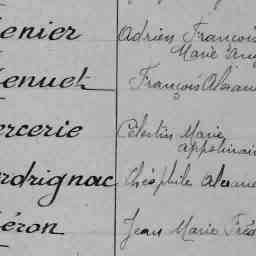 enier Adrien François
Marie Ang
enuet François Alexan
ercerie Célestin Marie
Appolinair
rdrignac Théophile Alexan
éron Jean Marie Fré